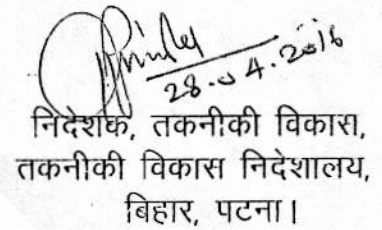 28.04.2016
निदेशक, तकनीकी विकास,
तकनीकी विकास निदेशालय,
बिहार, पटना।